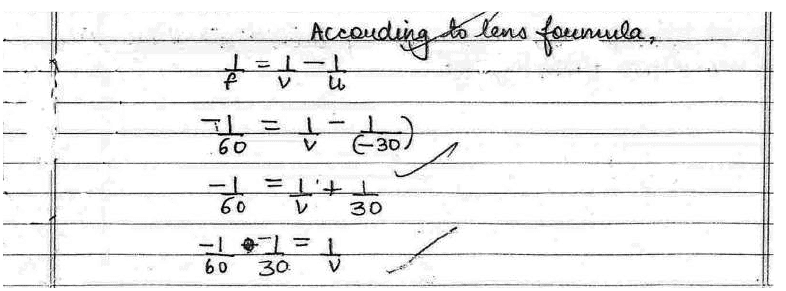 According to lens formula,
1/f = 1/v - 1/u
-1/60 = 1/v - 1/(-30)
-1/60 = 1/v + 1/30
-1/60 -1/30 = 1/v